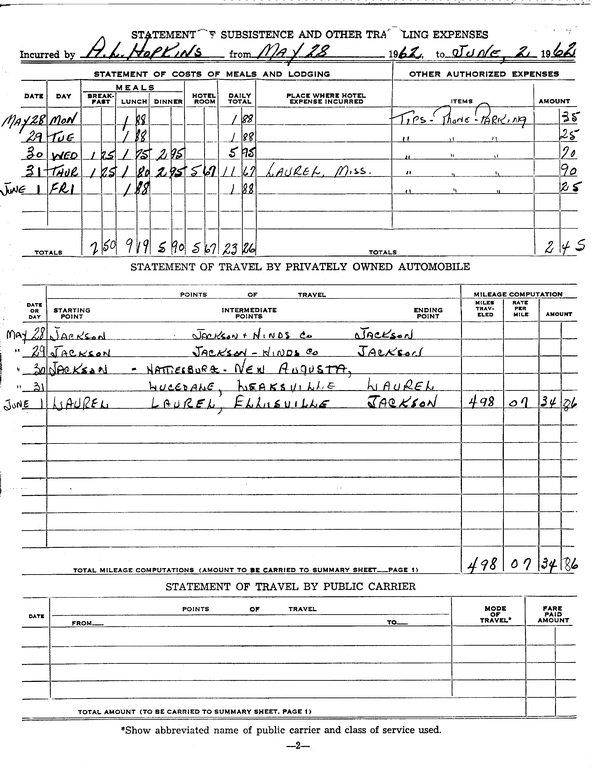 STATEMENT OF SUBSISTENCE AND OTHER TRAVELING EXPENSES
Incurred by A.L. HOPKINS from MAY 28 1962, to JUNE, 2, 1962
STATEMENT OF COSTS OF MEALS AND LODGING OTHER AUTHORIZED EXPENSES
DATE DAY MEALS BREAK-FAST LUNCH DINNER HOTEL ROOM DAILY TOTAL PLACE WHERE HOTEL EXPENSE INCURRED ITEMS AMOUNT
MAY 28 MON 1 88 1 88 TIPS - PHONE - PARKING 35
29 TUE 1 88 1 88 " " " 25
30 WED 1 25 1 75 2 95 5 95 " " " 70
31 THUR 1 25 1 80 2 95 5 67 11 67 LAUREL, MISS. " " " 90
JUNE 1 FRI 1 88 1 88 " " " 25
TOTALS 2 50 9 19 5 90 5 67 23 26 TOTALS 2 45
STATEMENT OF TRAVEL BY PRIVATELY OWNED AUTOMOBILE
DATE OR DAY POINTS OF TRAVEL MILEAGE COMPUTATION
STARTING POINT INTERMEDIATE POINTS ENDING POINT MILES TRAV-ELED RATE PER MILE AMOUNT
MAY 28 JACKSON JACKSON + HINDS CO JACKSON
" 29 JACKSON JACKSON - HINDS CO JACKSON
" 30 JACKSON - HATTIESBURG - NEW AUGUSTA,
" 31 LUCEDALE, LEAKSVILLE LAUREL
JUNE 1 LAUREL LAUREL, ELLISVILLE JACKSON 498 07 34 86
TOTAL MILEAGE COMPUTATIONS (AMOUNT TO BE CARRIED TO SUMMARY SHEET PAGE 1) 498 07 34 86
STATEMENT OF TRAVEL BY PUBLIC CARRIER
DATE POINTS OF TRAVEL MODE OF TRAVEL* FARE PAID AMOUNT
FROM TO
TOTAL AMOUNT (TO BE CARRIED TO SUMMARY SHEET. PAGE 1)
*Show abbreviated name of public carrier and class of service used.
—2—